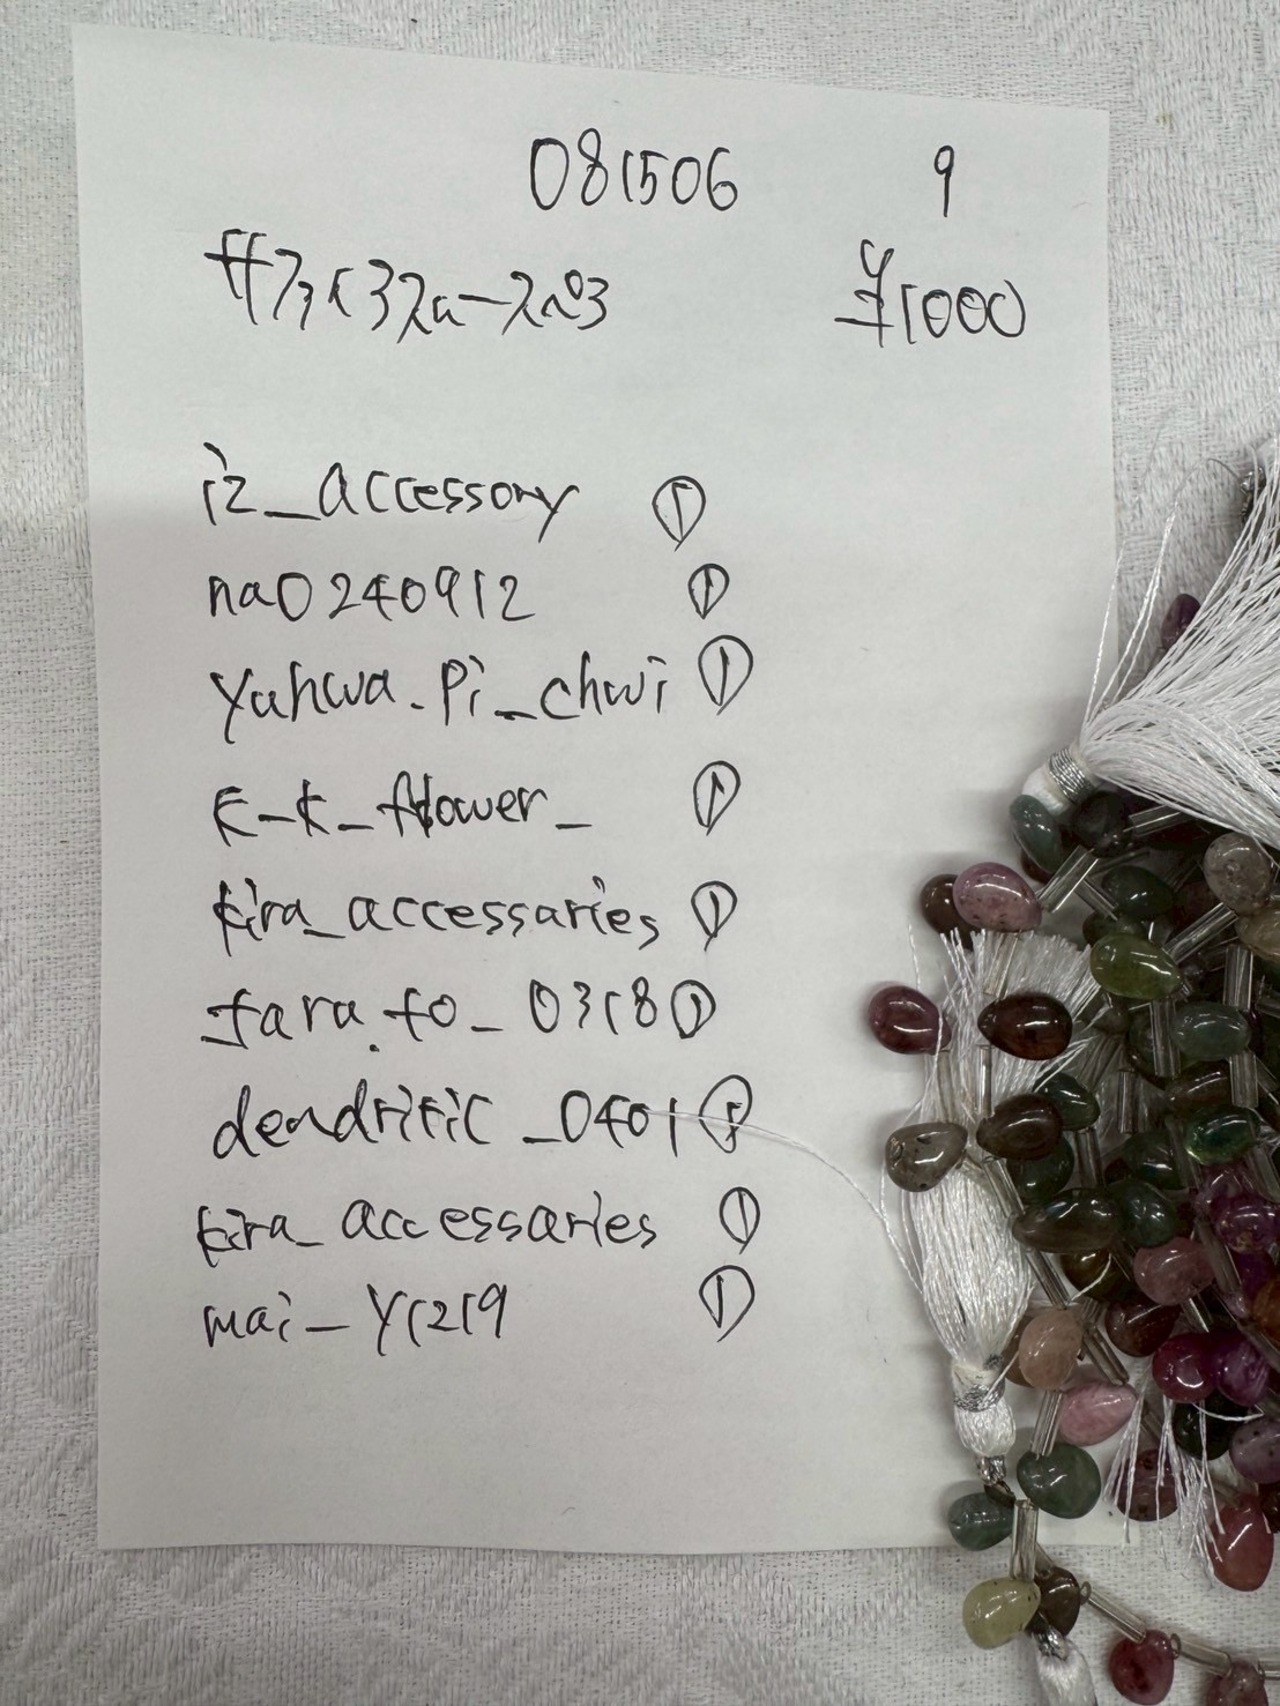 081506 9
¥1000
iz_accessory ①
na0240912 ①
yuhwa.pi_chwi ①
k_k_flower_ ①
kira_accessaries ①
tara.to_0318 ①
dendritic_0401 ①
kira_accessaries ①
mai_y1219 ①